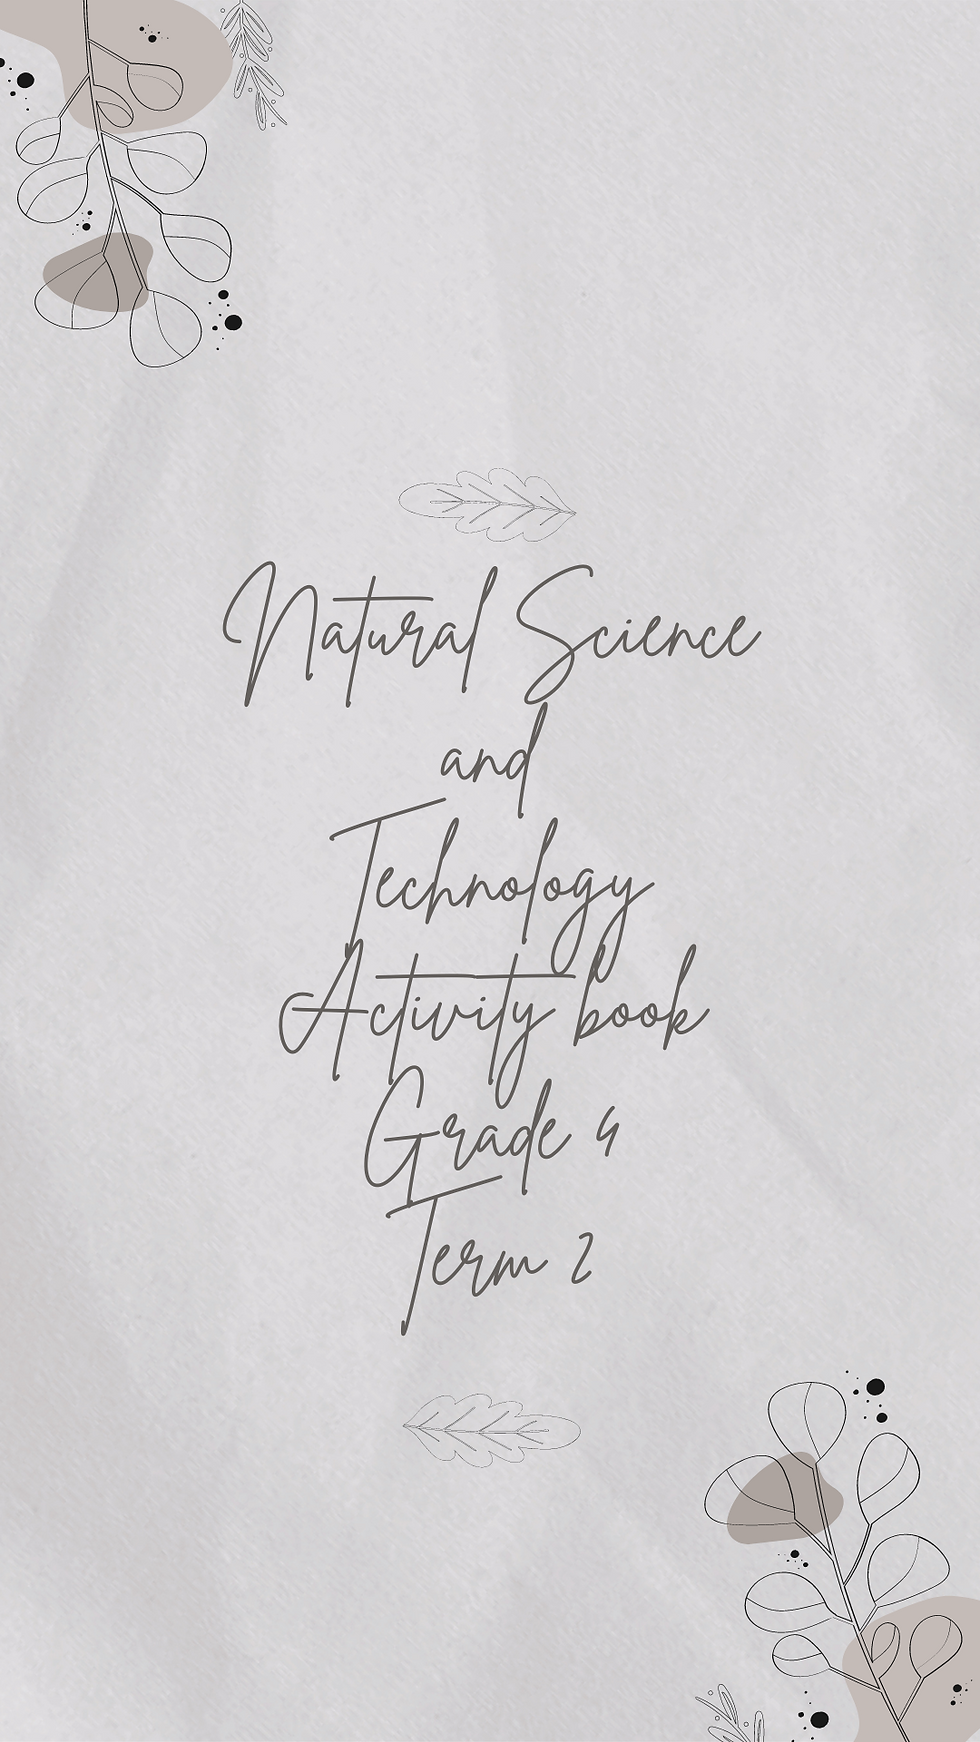 Natural Science
and
Technology
Activity book
Grade 4
Term 2